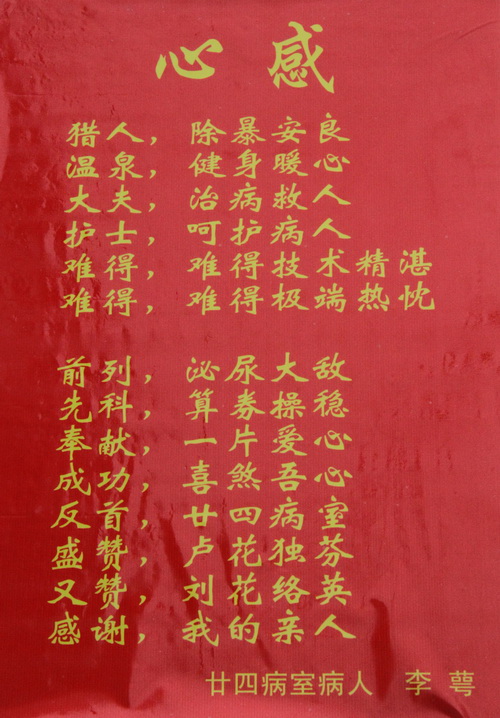 心感
猎人，除暴安良
温泉，健身暖心
大夫，治病救人
护士，呵护病人
难得，难得技术精湛
难得，难得极端热忱
前列，泌尿大敌
先科，算券操稳
奉献，一片爱心
成功，喜煞吾心
反首，廿四病室
盛赞，卢花独芬
又赞，刘花络英
感谢，我的亲人
廿四病室病人 李萼